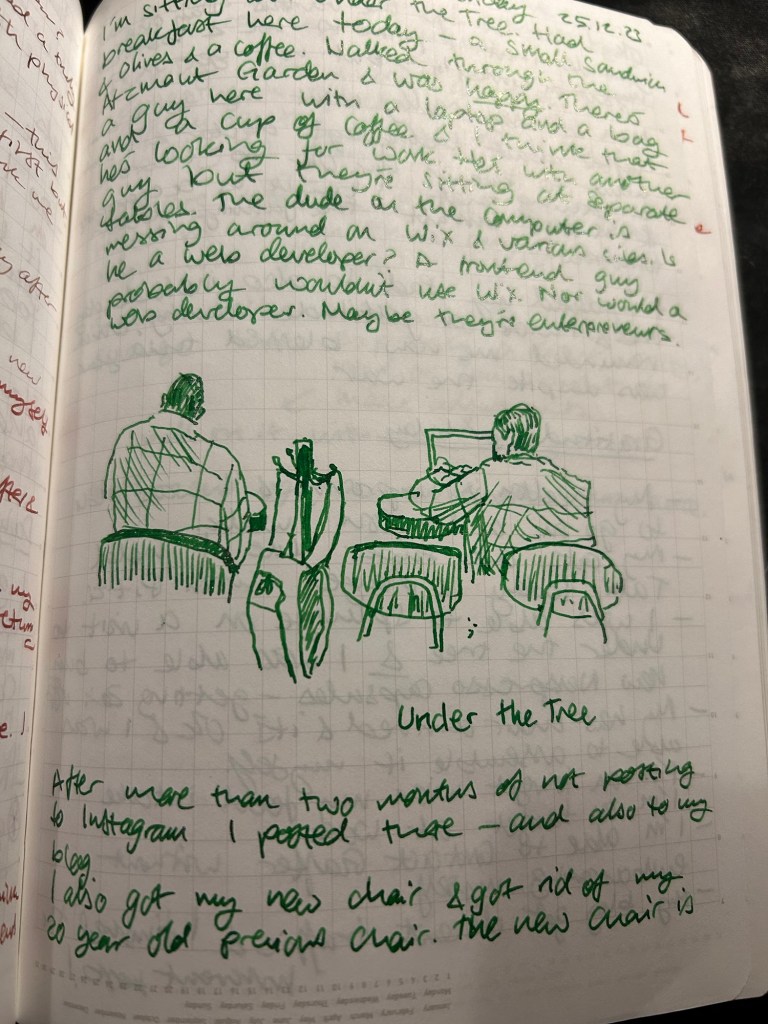 I'm sitting at Under the Tree. Had
25.12.23
breakfast here today – a small sandwich
& olives & a coffee. Walked through the
Atzmaut Garden & was happy. There's
a guy here with a laptop and a bag
and a cup of coffee & I think that
he's looking for work. He's with another
guy but they're sitting at separate
tables. The dude on the computer is
messing around on Wix & various sites. Is
he a web developer? A frontend guy
probably wouldn't use Wix. Nor would a
web developer. Maybe they're enterpreneurs.
Under the Tree
After more than two months of not posting
to Instagram I posted there – and also to my
blog.
I also got my new chair & got rid of my
20 year old previous chair. The new chair is